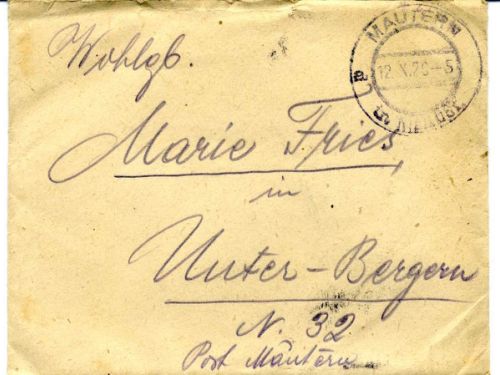 Wohlgb.
MAUTERN
12.X.26-5
a
Marie Fries
in
Unter-Bergern
N. 32
Post Mautern